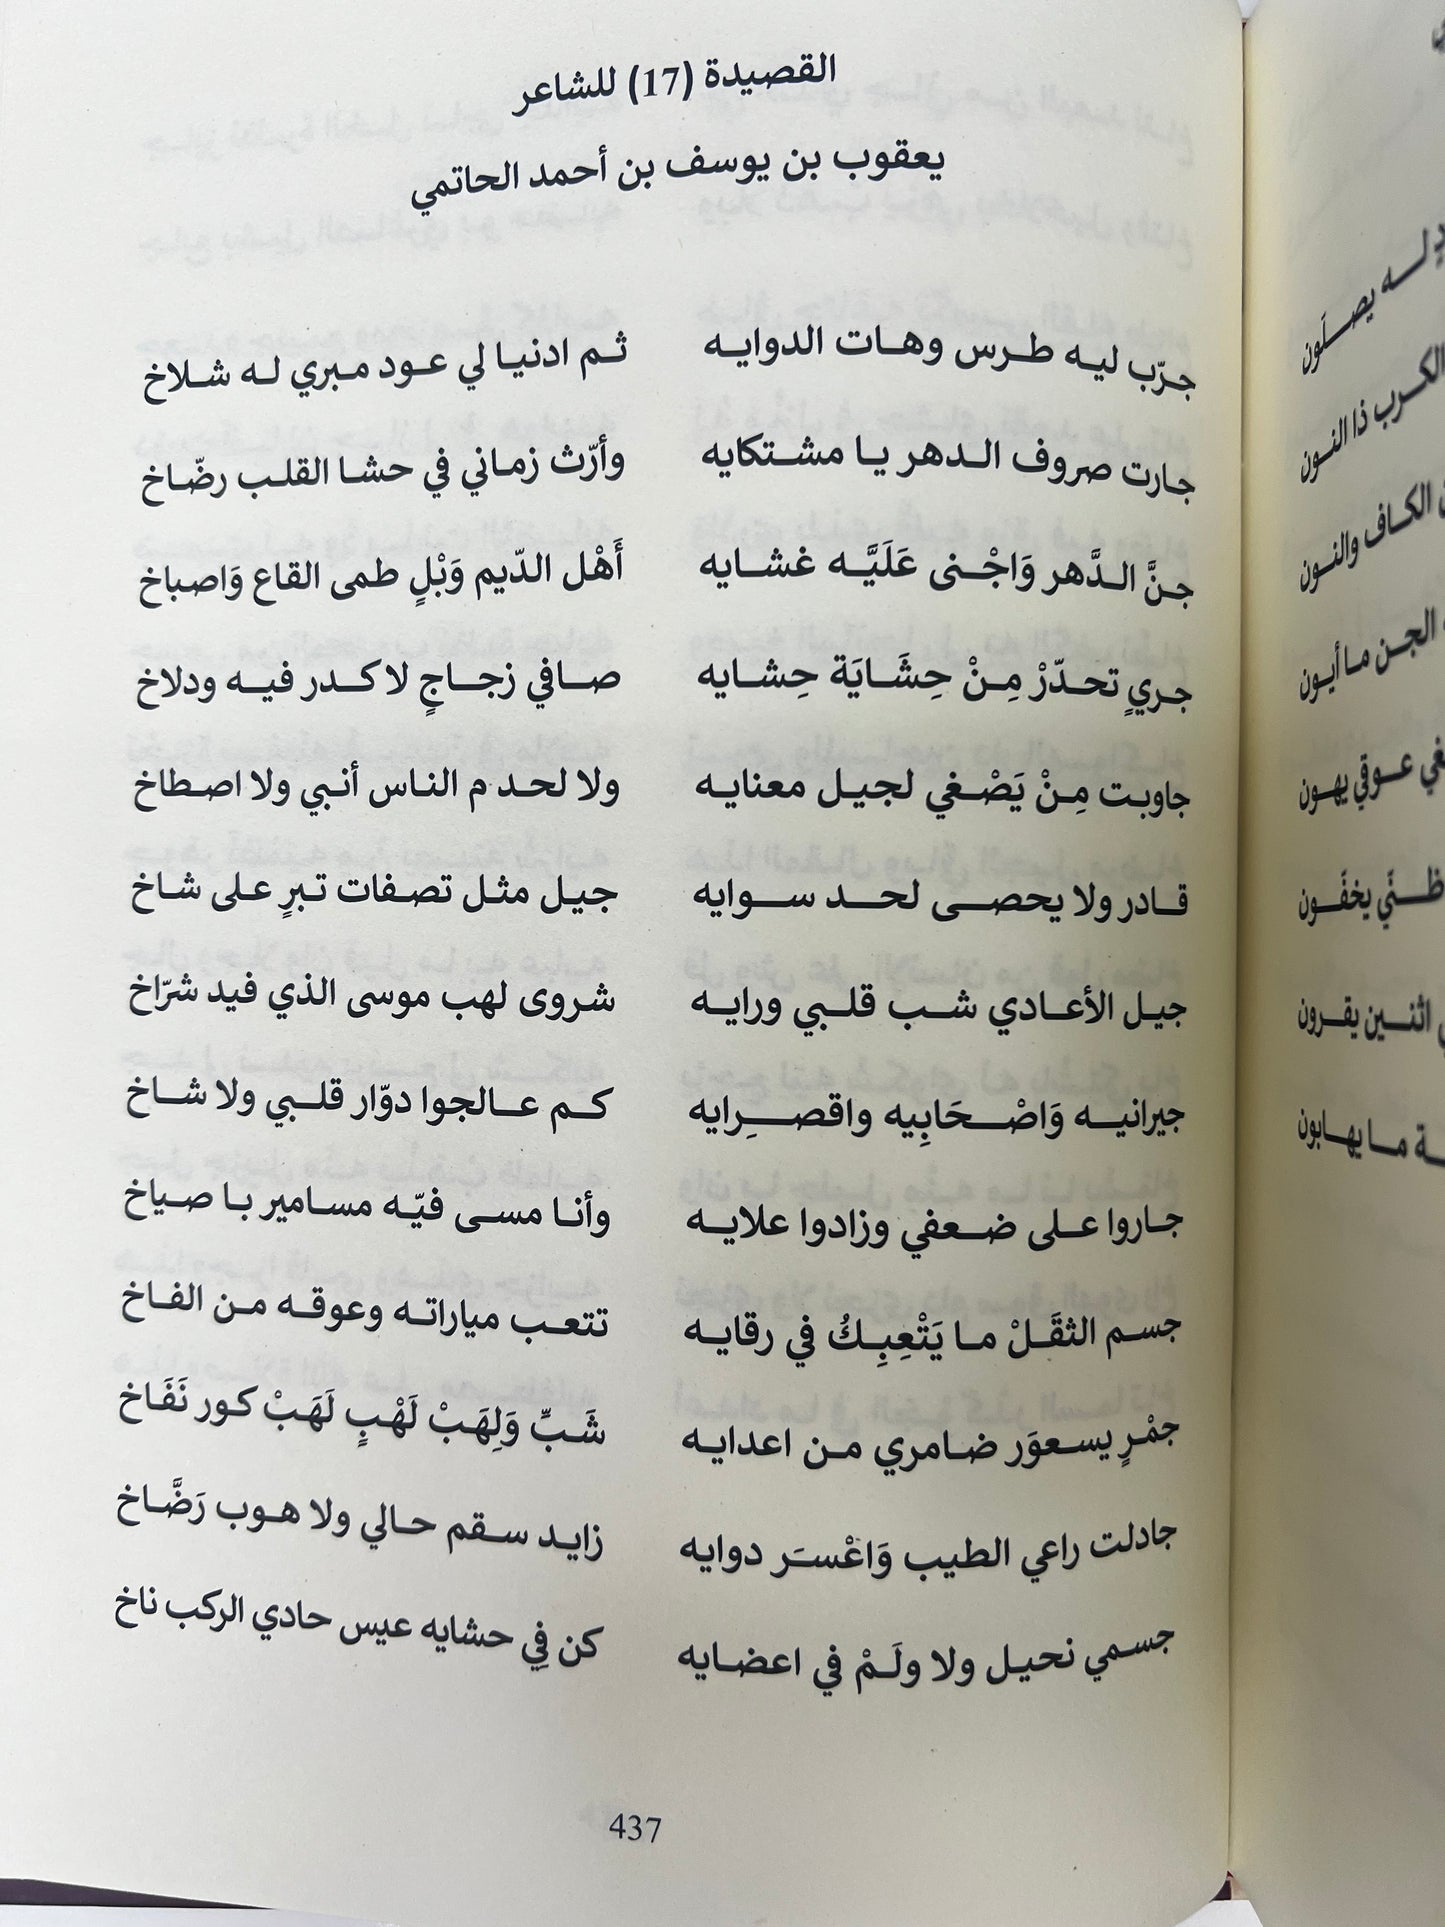 القصيدة (17) للشاعر
يعقوب بن يوسف بن أحمد الحاتمي
جرّب ليه طرس وهات الدوايه ثم ادنيا لي عود مبري له شلاخ
جارت صروف الدهر يا مشتكايه وأرّث زماني في حشا القلب رضّاخ
جنَّ الدَّهر وَاجْنى عَلَيَّه غشايه أَهْل الدّيم وَبْلٍ طمى القاع وَاصباخ
جريٍ تحدّرْ مِنْ حِشَايَة حِشايه صافي زجاجٍ لا كدر فيه ودلاخ
جاوبت مِنْ يَصْغي لجيل معنايه ولا لحد م الناس أنبي ولا اصطاخ
قادر ولا يحصى لحد سوايه جيل مثل تصفات تبرٍ على شاخ
جيل الأعادي شب قلبي ورايه شروى لهب موسى الذي فيد شرّاخ
جيرانيه وَاصْحَابِيه واقصرِايه كم عالجوا دوّار قلبي ولا شاخ
جاروا على ضعفي وزادوا علايه وأنا مسى فيّه مسامير با صياخ
جسم الثقَلْ ما يَتْعِبِكُ في رقايه تتعب مياراته وعوقه من الفاخ
جمْرٍ يسعوَر ضامري من اعدايه شَبِّ وَلِهَبْ لَهْبٍ لَهَبْ كور نَفَاخ
جادلت راعي الطيب وَاعْسَر دوايه زايد سقم حالي ولا هوب رَضَّاخ
جسمي نحيل ولا ولَمْ في اعضايه كن فِي حشايه عيس حادي الركب ناخ
437
يصلَون
الكرب ذا النون
الكاف والنون
الجن ما أيون
عوقي يهون
ظنّي يخفَون
اثنين يقرون
ما يهابون